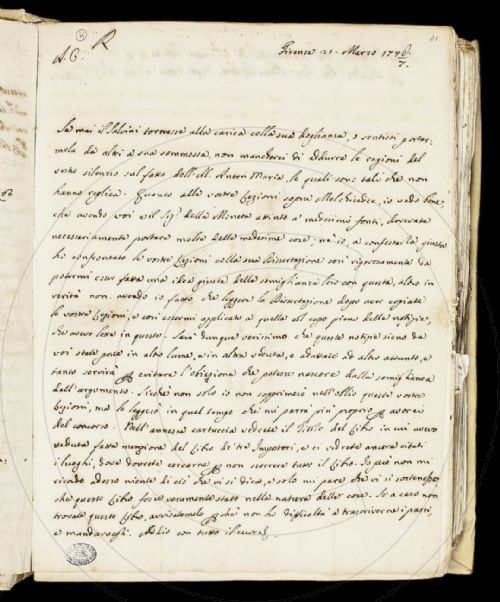 A. C. R
Firenze 21. Marzo 1746/7.
Se mai il Salvini tornasse alla carica colla sua doglianza, o sentissi portar-
mela da altri a sua sommossa, non mancherei di addurre le ragioni del
vostro silenzio sul fatto dell' Anton Maria, le quali sono tali che non
hanno replica. Quanto alle vostre Lezioni sopra Melchisedec, io vedo bene,
che avendo voi e il Sig.r della Moneta attinto a' medesimi fonti, dovevate
necessariamente portare molte delle medesime cose: nè io, a confessarla giusta
ho confrontato le vostre Lezioni colla sua Dissertazione così rigorosamente da
potermi esser fatta una idea giusta della somiglianza loro con questa, altro in
verità non avendo io fatto che leggere la Dissertazione dopo aver copiate
le vostre Lezioni, e così essermi applicato a quella col capo pieno delle notizie,
che avevo lette in queste. Sarà dunque verisimo che queste notizie sieno da
voi state poste in altro lume, e in altra veduta, e adattate ad altro assunto, e
tanto servirà per evitare l'obiezione che potesse nascere dalla somiglianza
dell'argomento. Sicchè non solo io non sopprimerò nell' queste vostre
Lezioni, ma le leggerò in quel tempo che mi parrà più proprio per
del concorso. Nell'annessa cartuccia vedrete il Titolo del Libro in cui avevo
veduta fatta menzione del Libro de' tre Impostori, e ci vedrete ancora citati
i luoghi, dove dovrete cercarne per non scorrere tutto il Libro. Io però non mi
ricordo adesso niente di ciò che vi si dica, e solo mi pare che vi si sostenesse
che questo Libro fosse veramente stato nella natura delle cose. Se a caso non
trovate questo Libro, avvisatemelo perchè non ho difficoltà a trascriverne i passi,
e mandarveli. Addio con tutto il cuore.